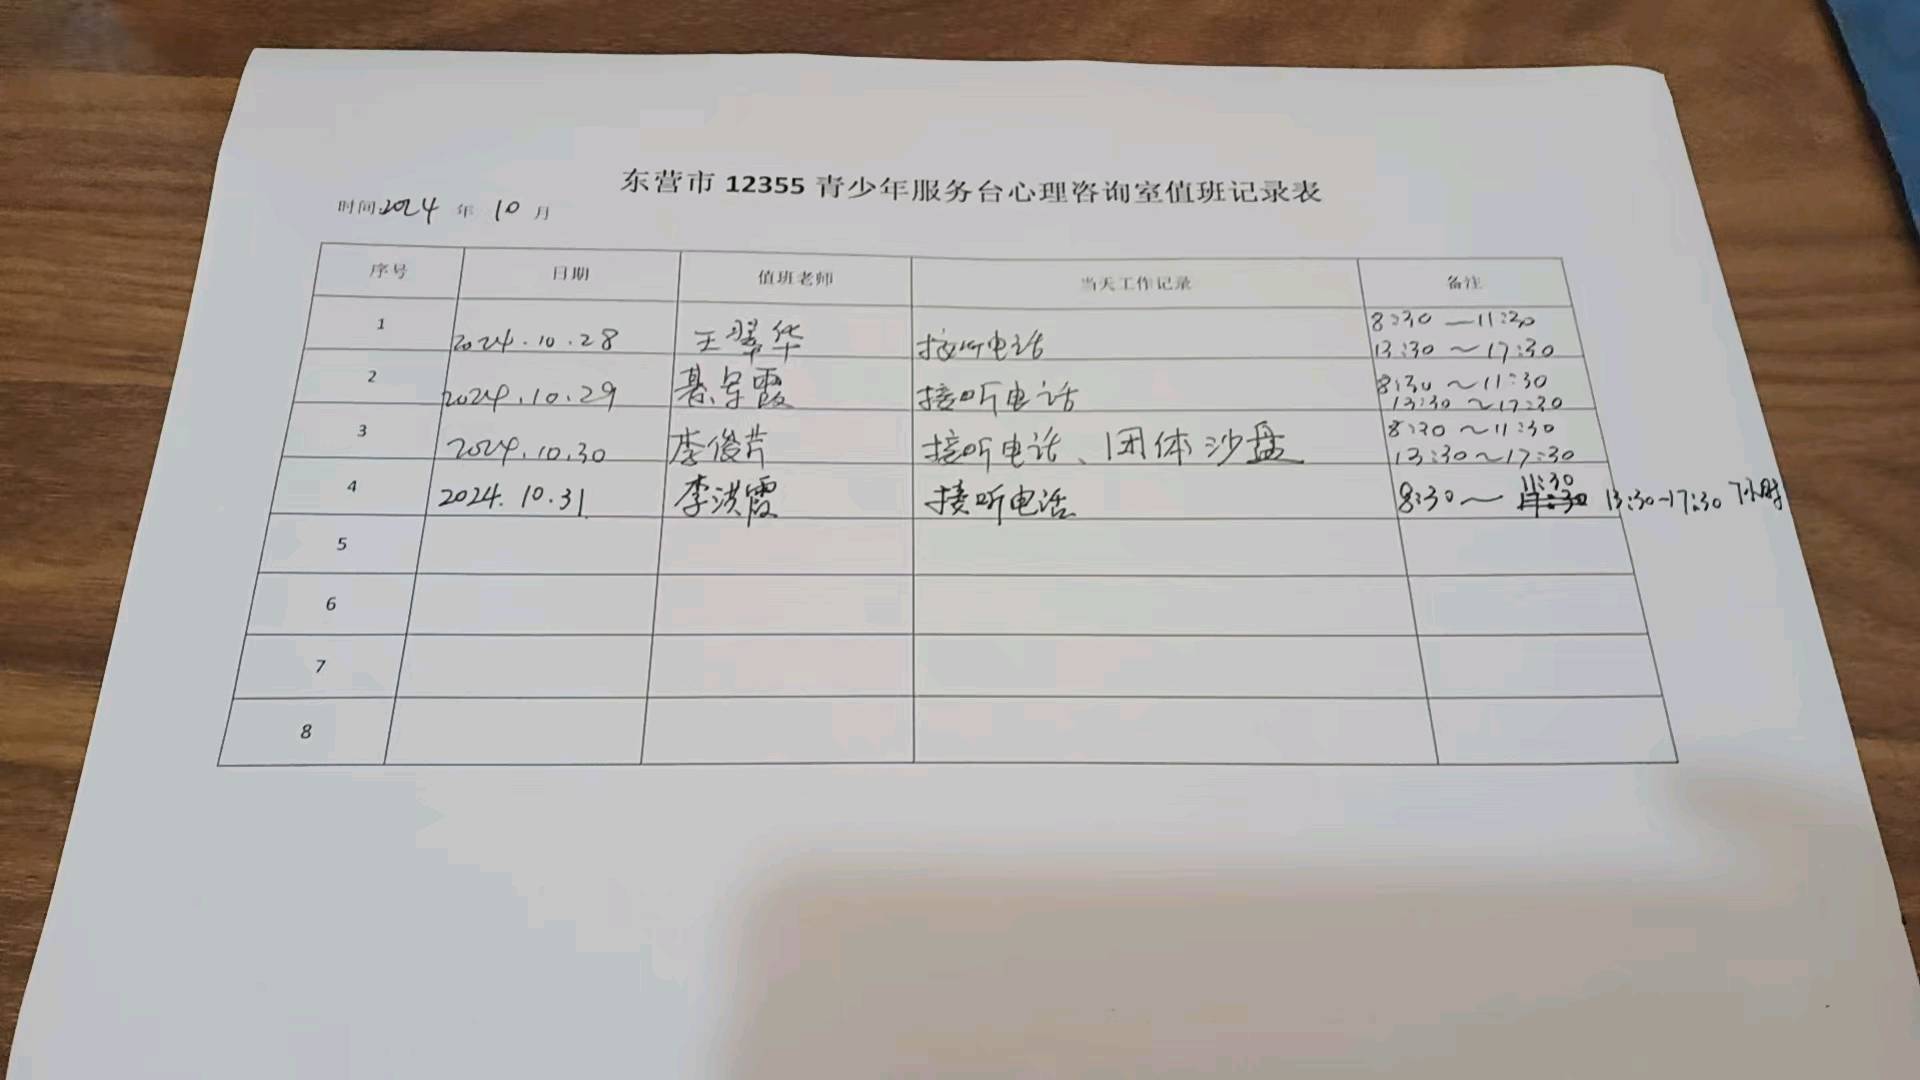 东营市 12355 青少年服务台心理咨询室值班记录表
时间:2024 年 10 月
序号 日期 值班老师 当天工作记录 备注
1 2024.10.28 王翠华 接听电话 8:30—11:30
13:30～17:30
2 2024.10.29 霞 接听电话 8:30～11:30
13:30～17:30
3 2024.10.30 李俊 接听电话、团体沙盘 8:30～11:30
13:30～17:30
4 2024.10.31 李洪霞 接听电话 8:30～11:30 13:30-17:30 7小时
5
6
7
8